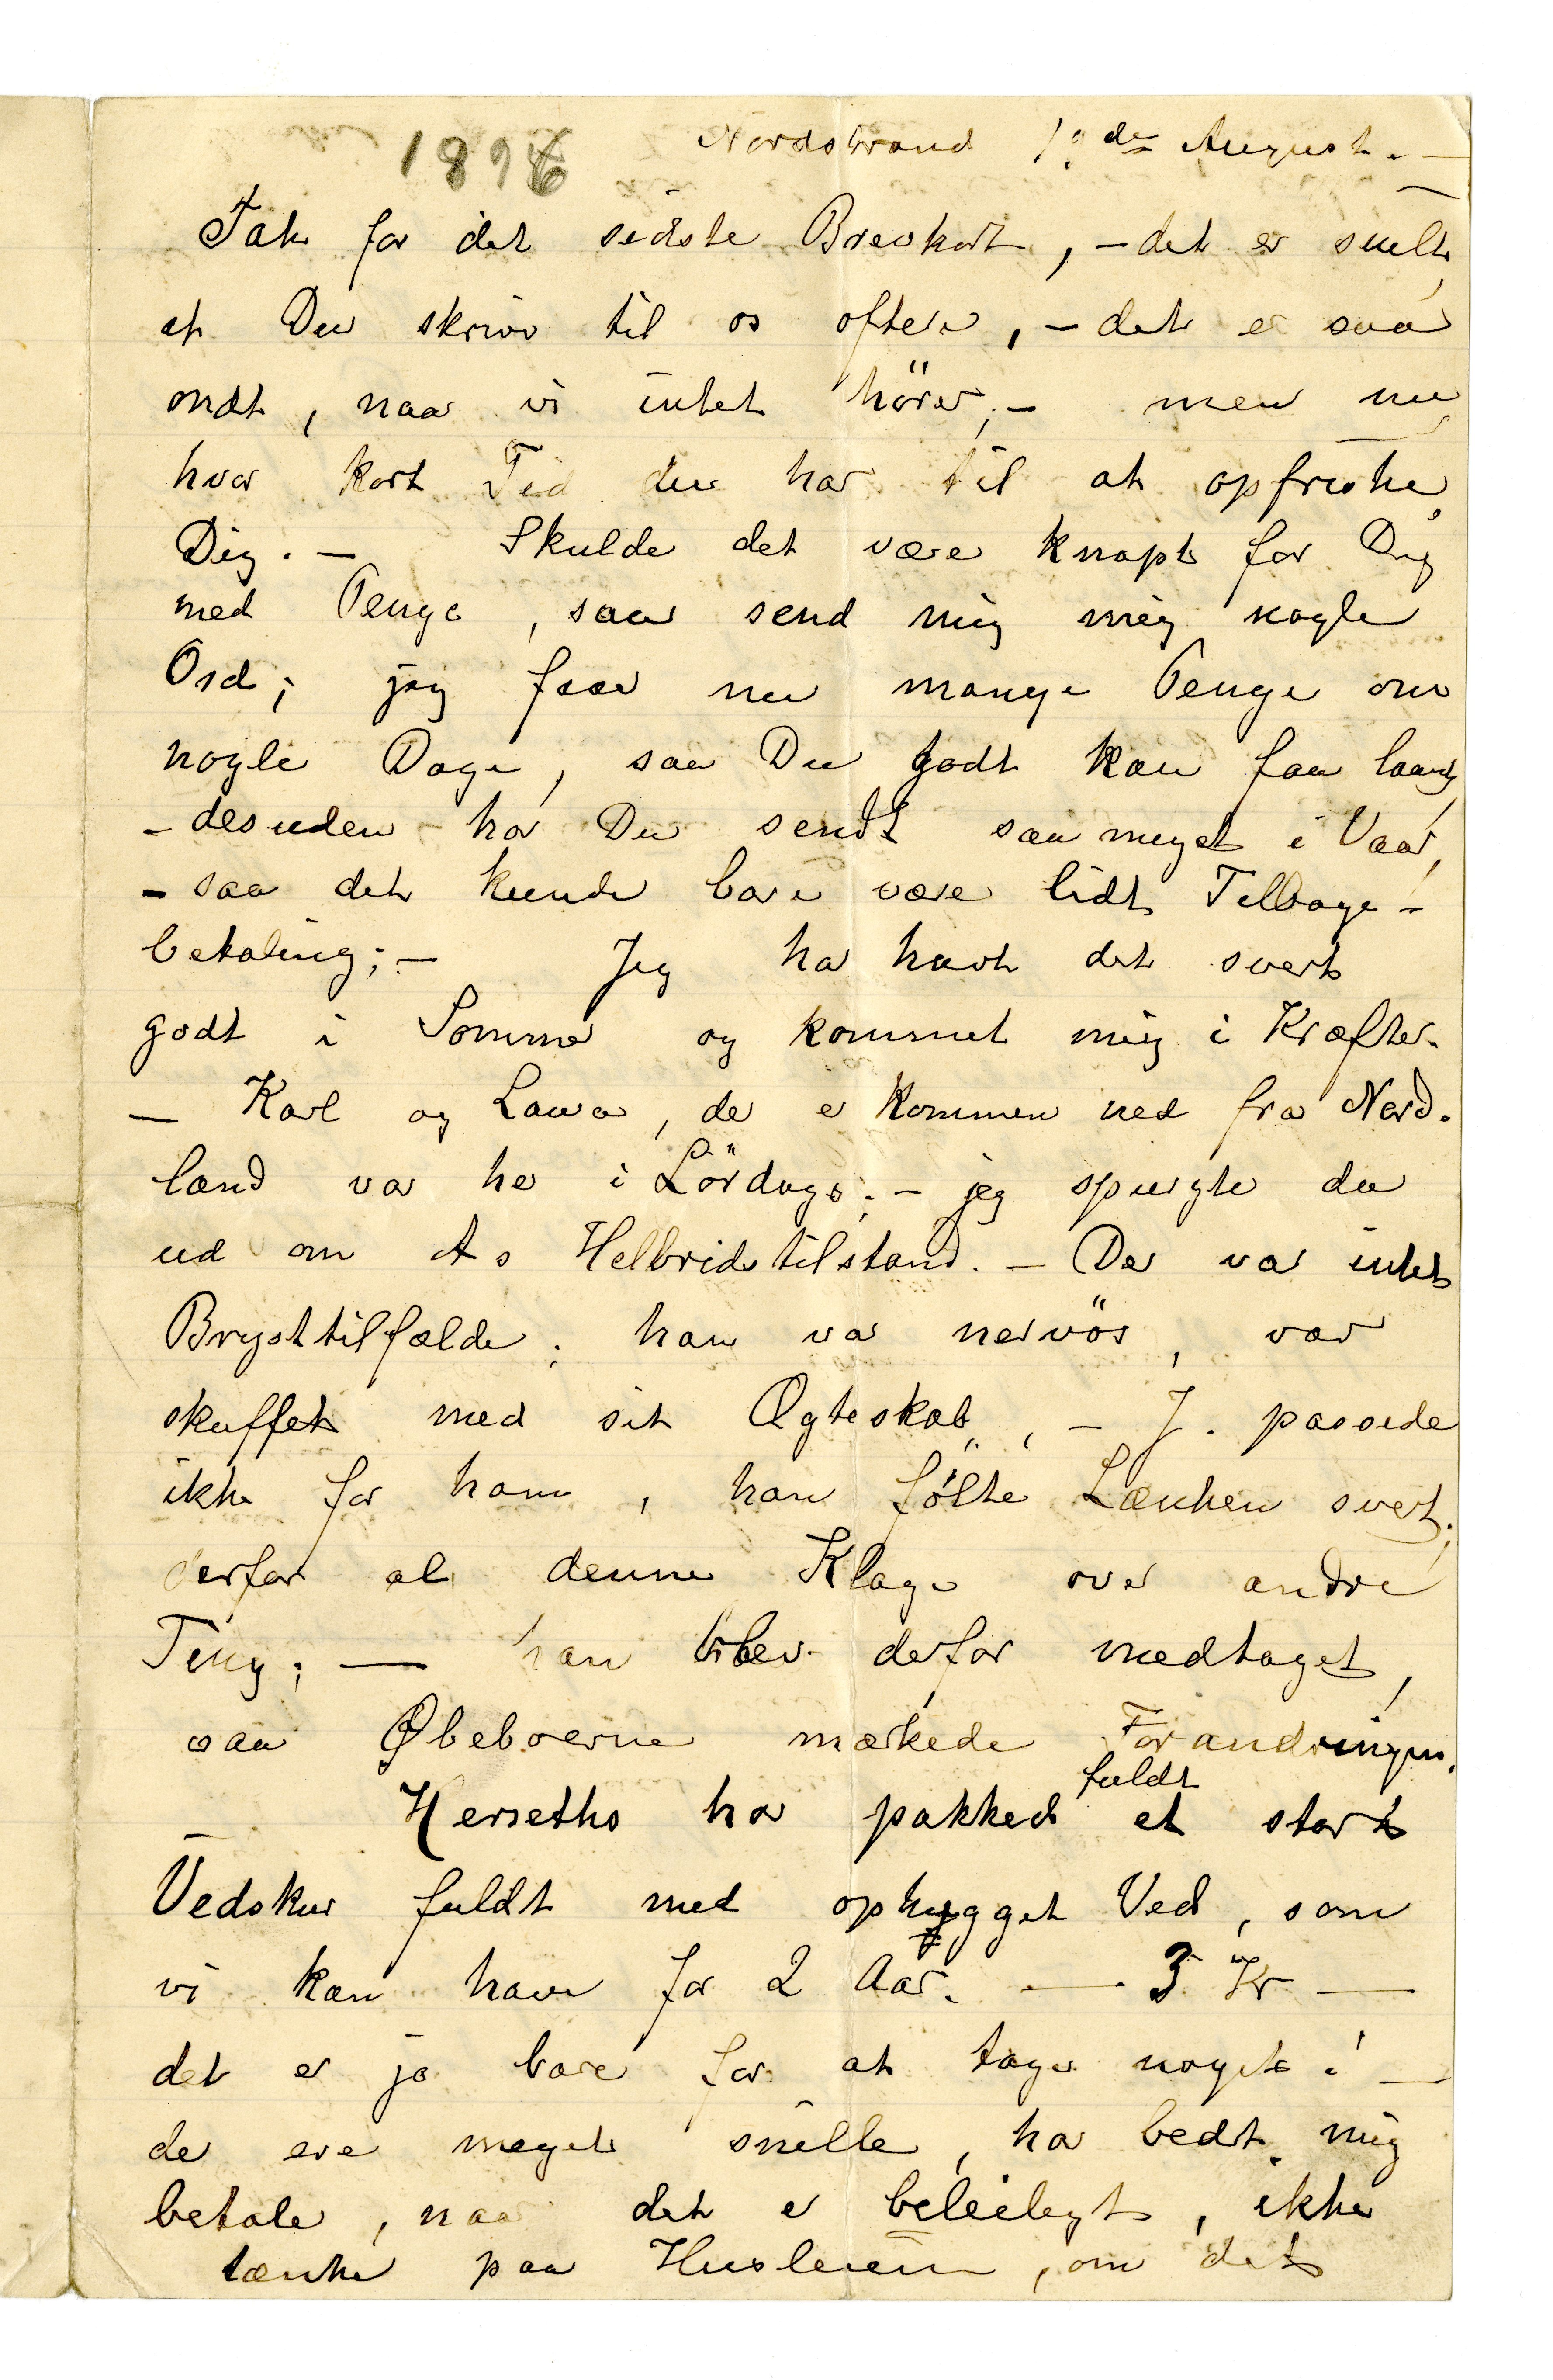 1896 Nordstrand 12de August. —
Tak for det sidste Brevkort, – det er snelt,
at Du skriver til os oftere, – det er saa
ondt, naar vi intet hörer; – men nu,
hvor kort Tid du har til at opfriske
Dig. – Skulde det være knapt for Dig
med Penge, saa send mig mig nogle
Ord; jeg faar nu mange Penge om
nogle Dage, saa Du godt kan faa laant,
– desuden har Du sendt saa meget i Vaar,
– saa det kunde bare være lidt Tilbage-
betaling; – Jeg har havt det svert
godt i Sommer og kommet mig i Kræfter.
– Karl og Laura, der er kommen ned fra Nord-
land var her i Lördags; – jeg spurgte da
ud om As Helbridstilstand. – Der var intet
Brysttilfælde; han var nervös, var
skuffet med sit Ægteskab, – J. passede
ikke for ham, han fölte Lænken svert;
derfor al denne Klage over andre
Ting; — han blev derfor medtaget,
saa Øbeboerne mærkede Forandringen.
Herseths har pakked fuldt et stort
Vedskur fuldt med ophugget Ved, som
vi kan have for 2 Aar. — 3 Kr —
det er jo bare for at tage noget i —
de ere meget snille, har bedt mig
betale, naar det er beleiligt, ikke
tænke paa Husleien, om det